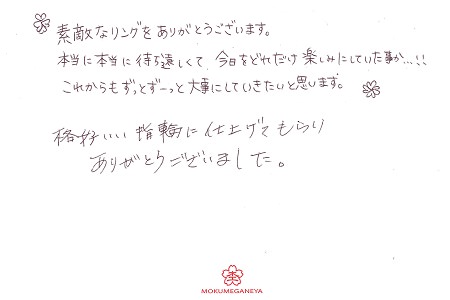 素敵なリングをありがとうございます。
本当に本当に待ち遠しくて、今日をどれだけ楽しみにしていた事か…!!
これからもずっとずーっと大事にしていきたいと思います。
格好いい指輪に仕上げてもらい
ありがとうございました。
MOKUMEGANEYA